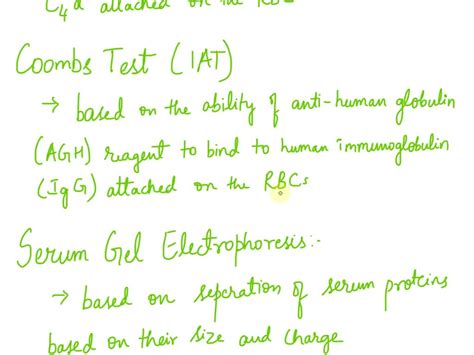 C4d attached on the RBC
Coombs Test (IAT)
→ based on the ability of anti-human globulin
(AGH) reagent to bind to human immunoglobulin
(IgG) attached on the RBCs
Serum Gel Electrophoresis:-
→ based on sepcration of serum proteins
based on their size and charge